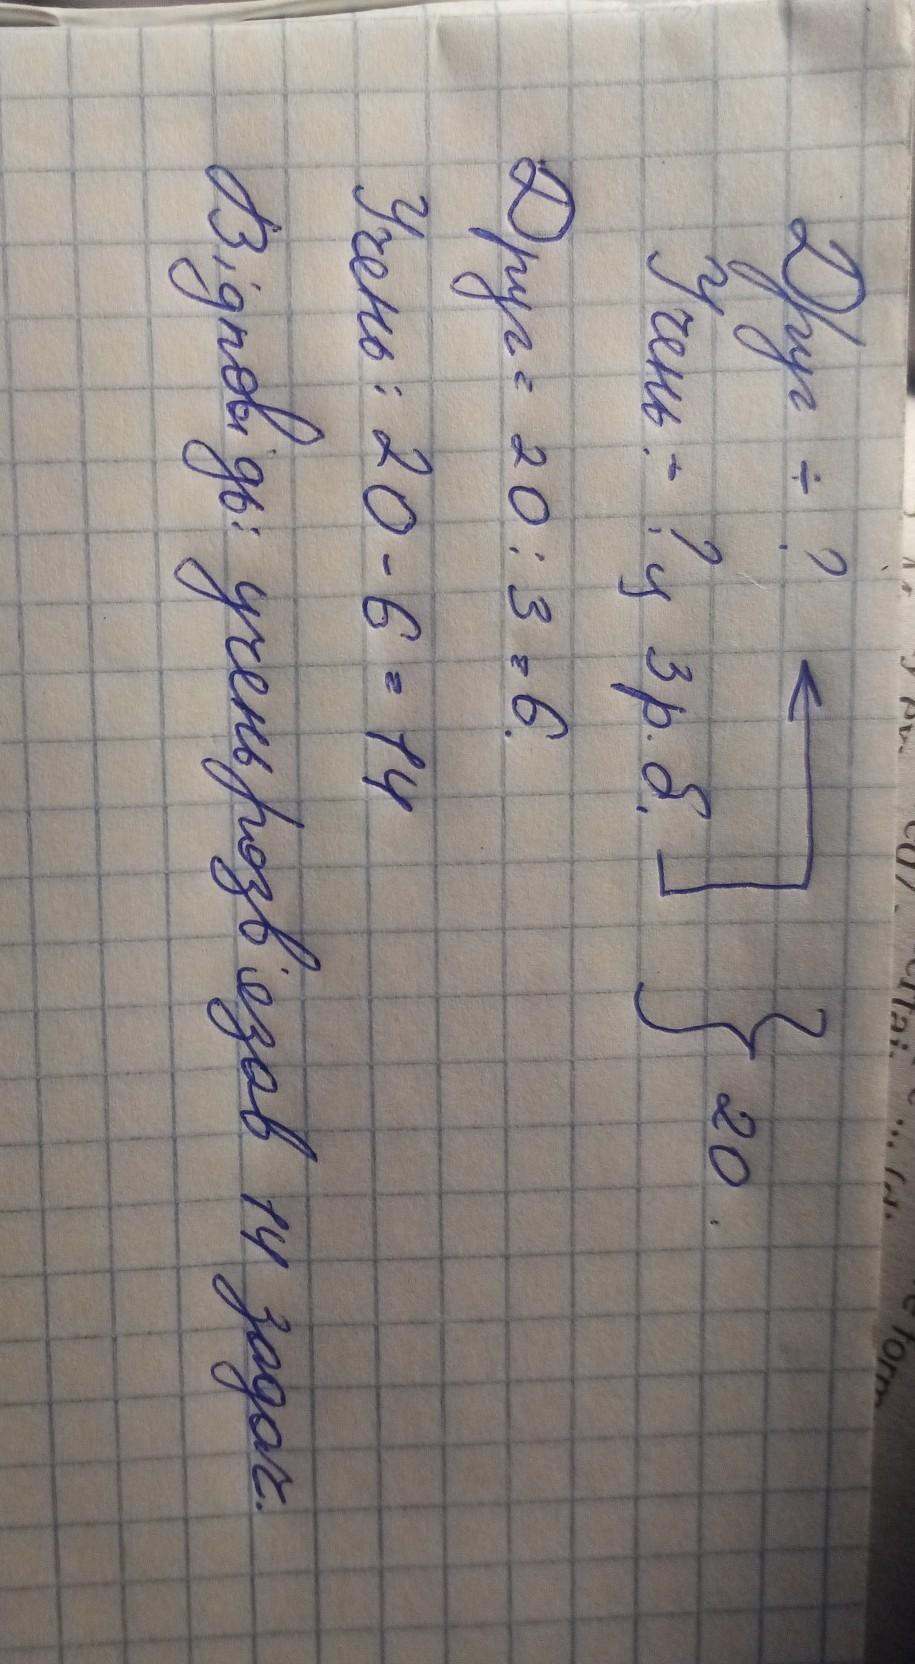 Друг ÷ ?
Учень ÷ ? у 3 р. б. } 20.
Друг = 20 : 3 = 6.
Учень: 20 - 6 = 14
Відповідь: учень розв'язав 14 задач.